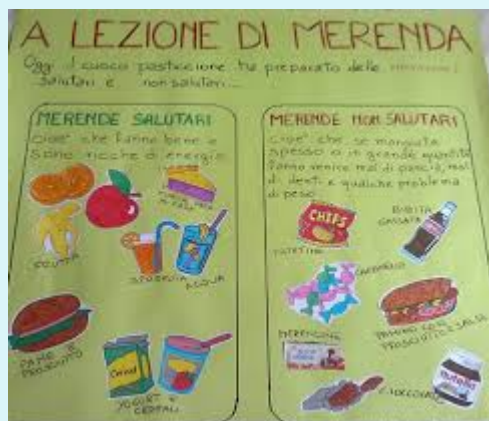 A LEZIONE DI MERENDA
Oggi il cuoco pasticcione ha preparato delle
salutari e non salutari...
MERENDE SALUTARI
cioè che fanno bene e
sono ricche di energie
FRUTTA
SPREMUTA
ACQUA
PANE E
PROSCIUTTO
Cereal
YOGURT e
CEREALI
MERENDE NON SALUTARI
cioè che se mangiate
spesso o in grande quantità
fanno venire mal di pancia, mal
di denti e qualche problema
di peso
CHIPS
PATATINE
BIBITA
GASSATA
CARAMELLE
PANINO CON
PROSCIUTTO E SALSA
MERENDINE
nutella
CIOCCOLATO